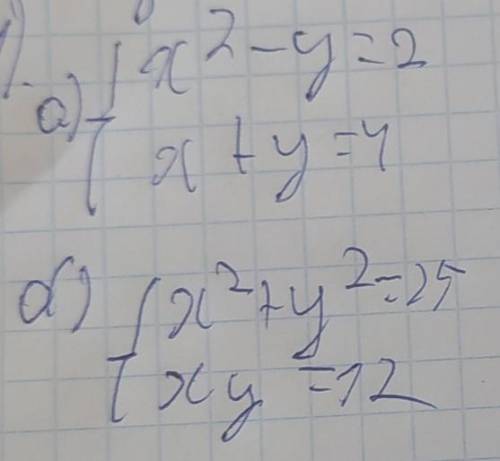 1).
а) { x² - y = 2
x + y = 4
б) { x² + y² = 25
xy = 12